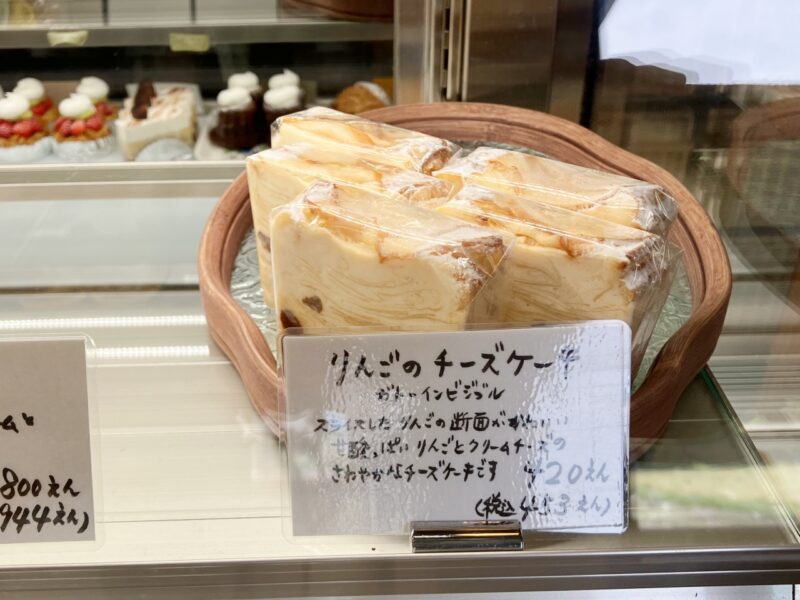 りんごのチーズケーキ
ガトーインビジブル
スライスしたりんごの断面がかわいい
甘酸っぱいりんごとクリームチーズの
さわやかなチーズケーキです
420えん
(税込453えん)
800えん
944えん)